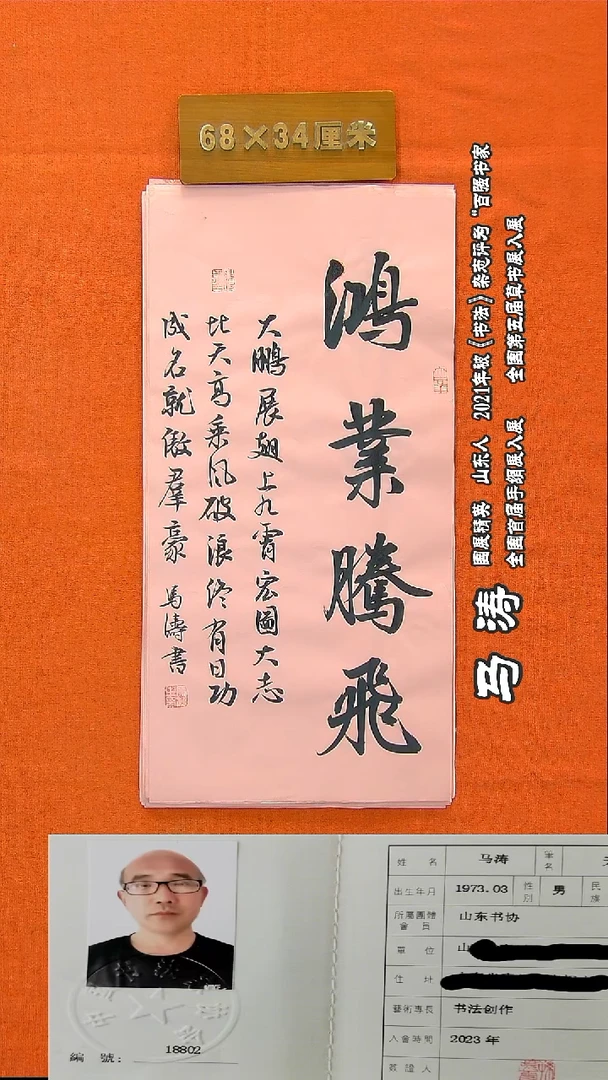 68×34厘米
鸿業騰飛
大鹏展翅上九霄宏圖大志
比天高乘风破浪终有日功
成名就傲羣豪 馬濤書
马涛
国展精英 山东人 2021年被《书法》杂志评为“百强书家
全国首届手卷展入展 全国第五届草书展入展
姓名 马涛 筆名
出生年月 1973.03 性別 男 民族
所屬團體會員 山东书协
單位 山
住址
藝術專長 书法创作
入會時間 2023年
簽證人
編號：18802